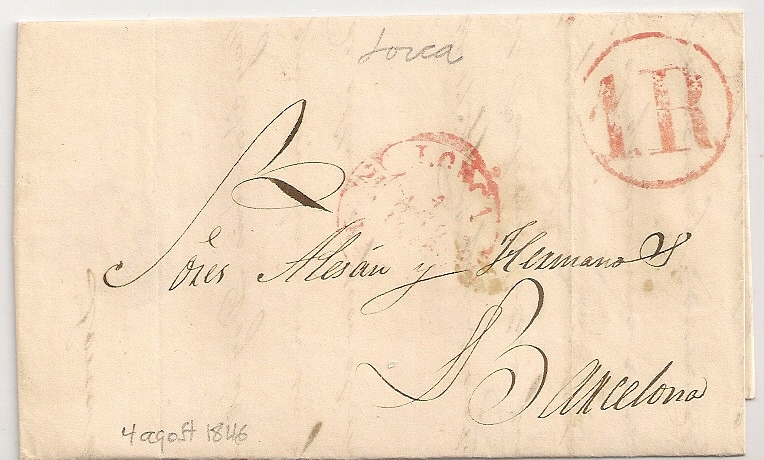 Lorca
1R
LORCA
Sres Alesán y Hermano
Barcelona
4 agost 1846